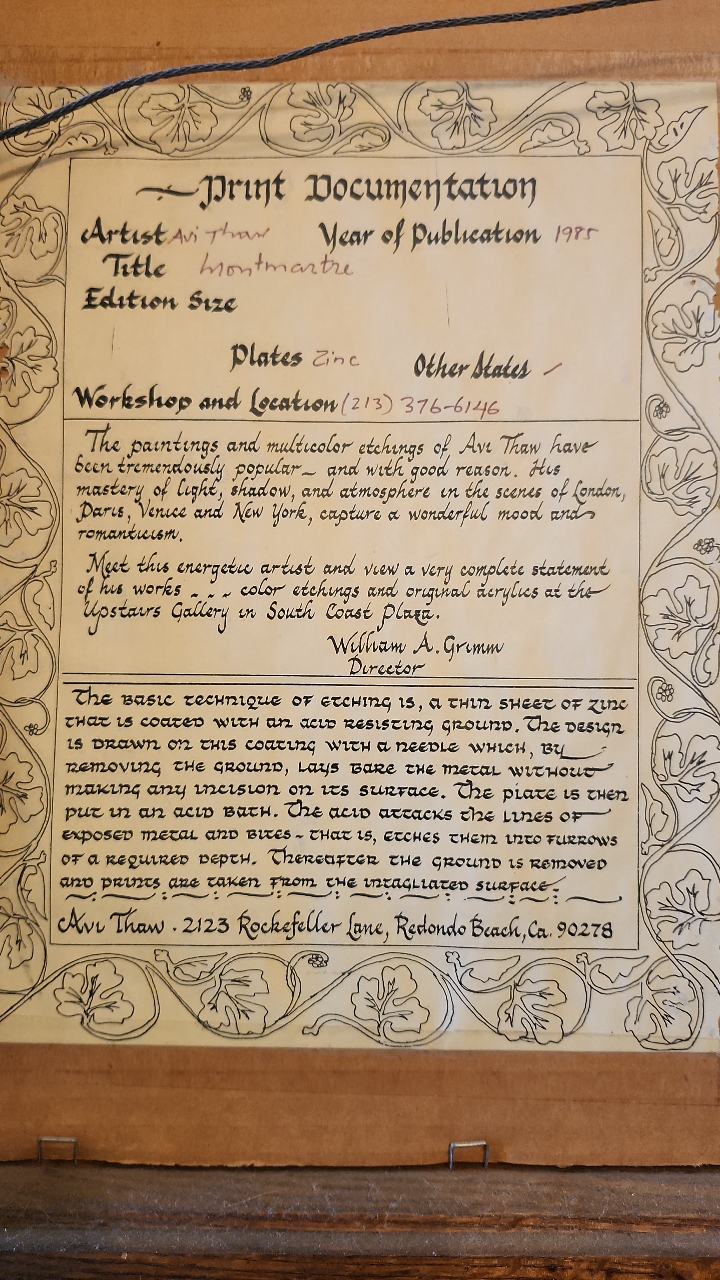 Print Documentation
Artist Avi Thaw Year of Publication 1985
Title Montmartre
Edition Size
Plates Zinc Other States -
Workshop and Location (213) 376-6146
The paintings and multicolor etchings of Avi Thaw have
been tremendously popular - and with good reason. His
mastery of light, shadow, and atmosphere in the scenes of London,
Paris, Venice and New York, capture a wonderful mood and
romanticism.
Meet this energetic artist and view a very complete statement
of his works - - - color etchings and original acrylics at the
Upstairs Gallery in South Coast Plaza.
William A. Grimm
Director
The basic technique of etching is, a thin sheet of zinc
that is coated with an acid resisting ground. The design
is drawn on this coating with a needle which, by
removing the ground, lays bare the metal without
making any incision on its surface. The plate is then
put in an acid bath. The acid attacks the lines of
exposed metal and bites - that is, etches them into furrows
of a required depth. Thereafter the ground is removed
and prints are taken from the intagliated surface.
Avi Thaw . 2123 Rockefeller Lane, Redondo Beach, Ca. 90278